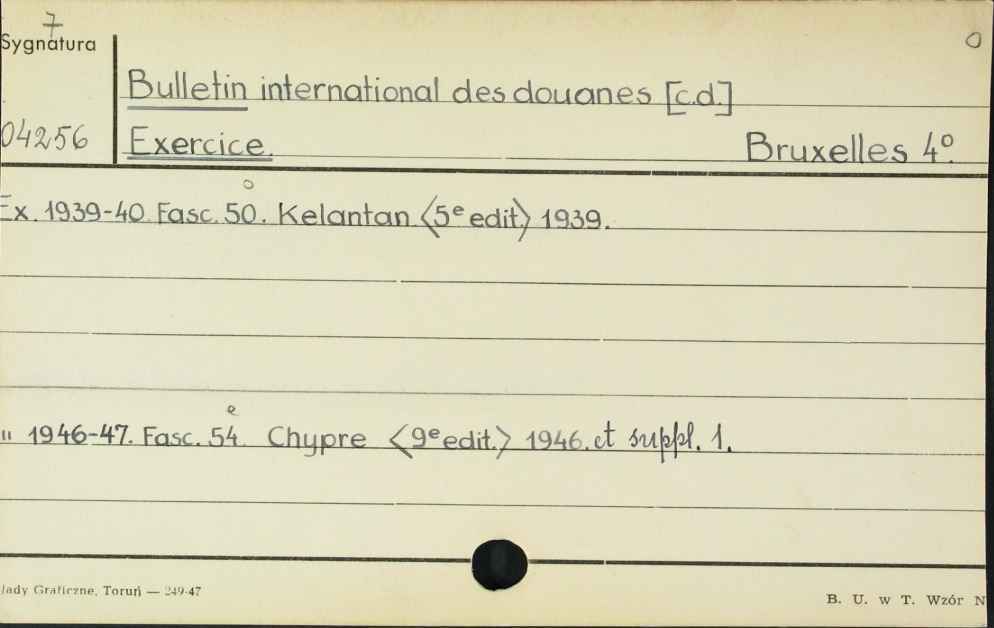 7
Sygnatura
o
Bulletin international des douanes [c.d.]
04256
Exercice.
Bruxelles 4°.
o
Ex. 1939-40. Fasc. 50. Kelantan <5e edit.> 1939.
e
" 1946-47. Fasc. 54. Chypre <9e edit.> 1946. et suppl. 1.
łady Graficzne, Toruń — 249-47
B. U. w T. Wzór N